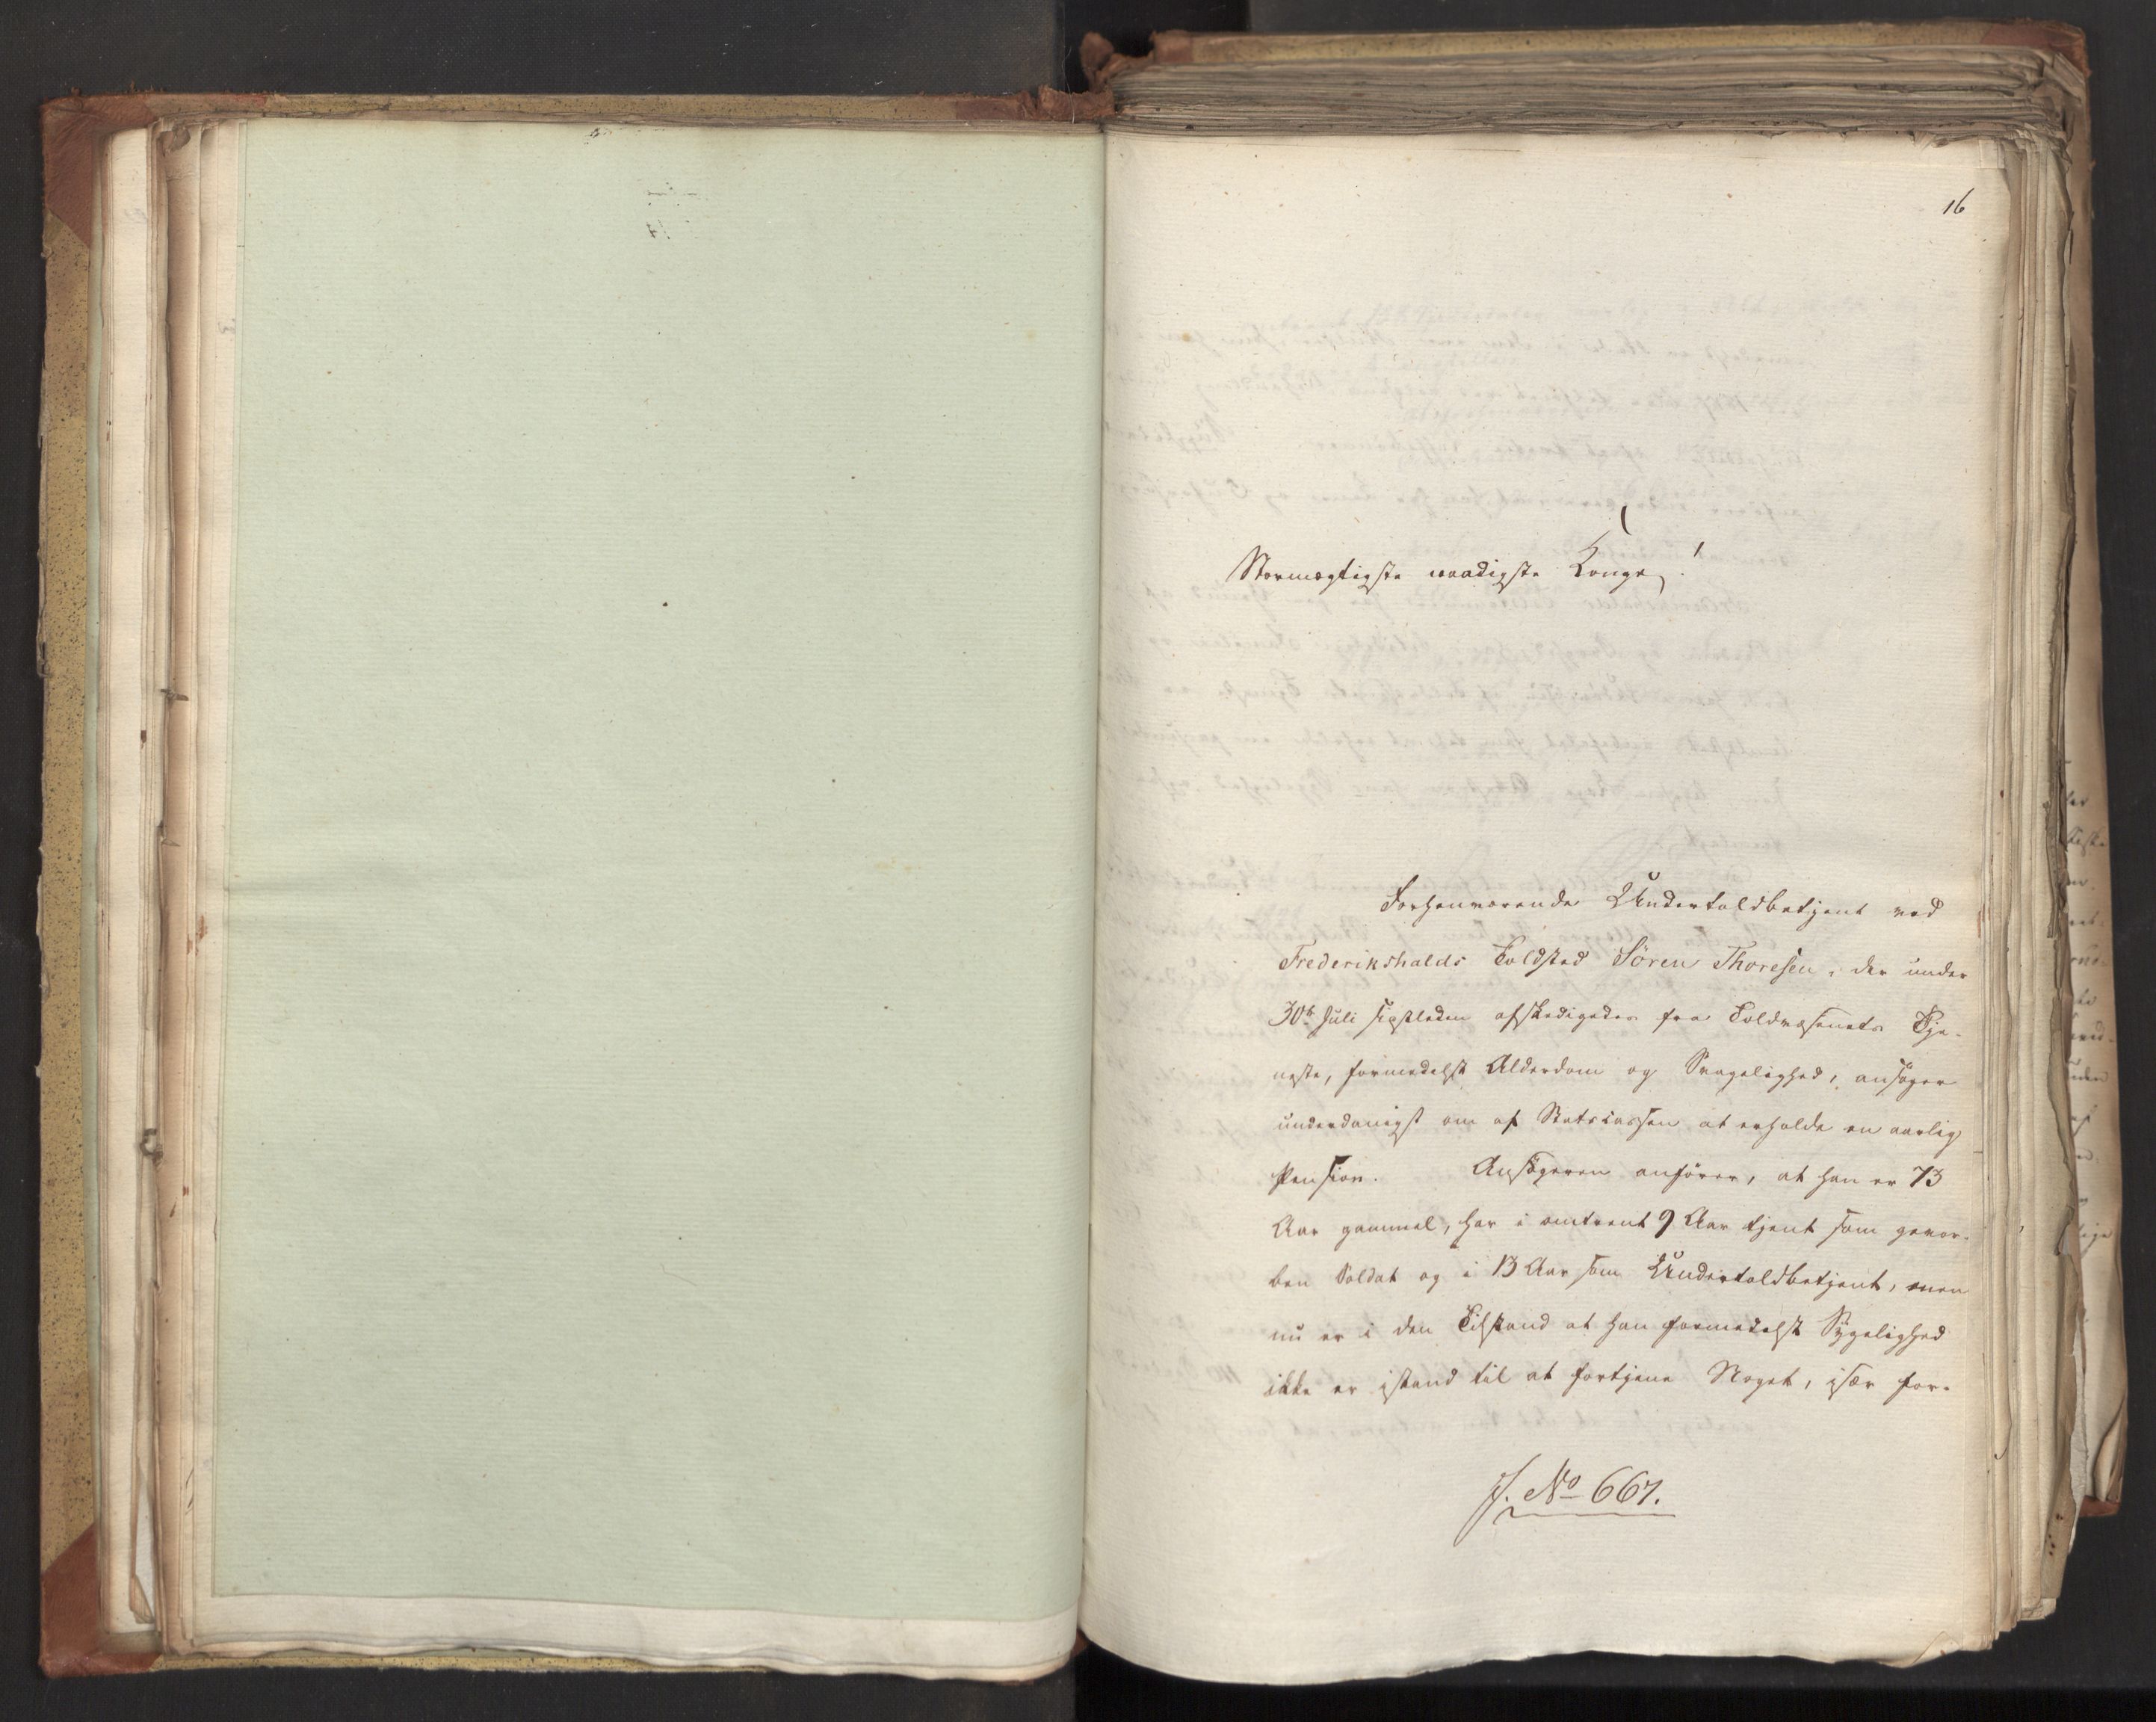 16
Stormægtigste naadigste Konge!
Forhenværende Undertoldbetjent ved
Frederikshalds Toldsted Sören Thoresen, der under
30te Juli sistleden afskedigedes fra Toldvæsenets Tje-
neste, formedelst Alderdom og Svagelighed, ansøger
underdanigst om af Statscassen at erholde en aarlig
Pension. Ansøgeren anfører, at han er 73
Aar gammel, har i omtrent 9 Aar tjent som gevor-
ben Soldat og i 13 Aar som Undertoldbetjent, men
nu er i den Tilstand at han formedelst Sygelighed
ikke er istand til at fortjene Noget, især for-
J. No 667.